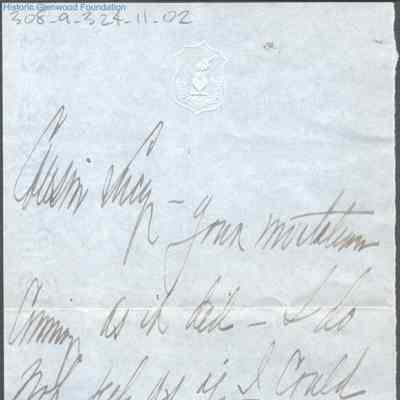 Historic Glenwood Foundation
308-9-324-11-02
Cousin Shay - your invitation
Coming as it did - I do
not feel as if I could